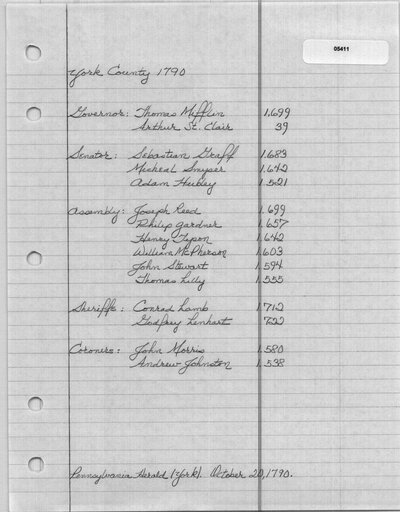 05411
York County 1790
Governor: Thomas Mifflin 1,699
Arthur St. Clair 39
Senator: Sebastian Graff 1.683
Micheal Smyser 1.642
Adam Hubley 1.521
Assembly: Joseph Reed 1.699
Philip Gardner 1.657
Henry Tyson 1.642
William McPherson 1.603
John Stewart 1.594
Thomas Lilly 1.555
Sheriffs: Conrad Lamb 1.712
Godfrey Lenhart 722
Coroners: John Morris 1.580
Andrew Johnston 1.538
Pennsylvania Herald (York). October 20, 1790.